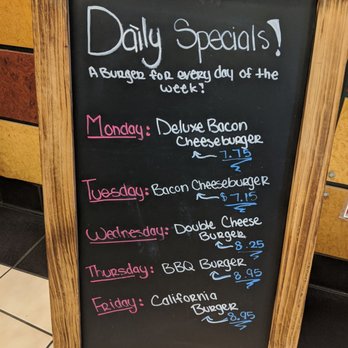 Daily Specials!
A Burger for every day of the
week!
Monday: Deluxe Bacon
Cheeseburger
7.75
Tuesday: Bacon Cheeseburger
$7.15
Wednesday: Double Cheese
Burger
8.25
Thursday: BBQ Burger
8.95
Friday: California
Burger
8.95